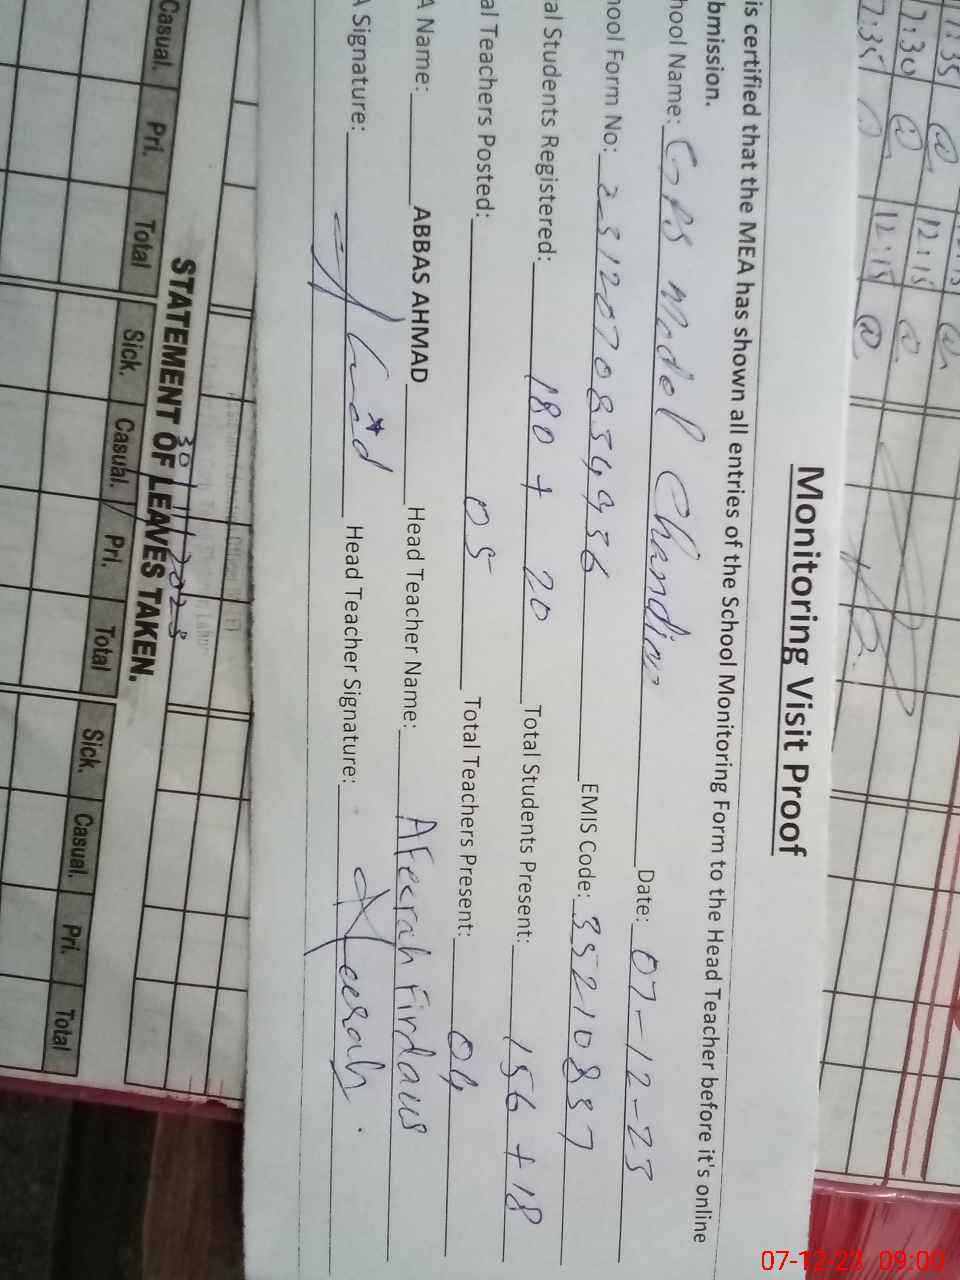 Monitoring Visit Proof
is certified that the MEA has shown all entries of the School Monitoring Form to the Head Teacher before it's online
bmission.
hool Name: GPS Model Chandia Date: 07-12-23
ool Form No: EMIS Code: 35210887
al Students Registered: 180 + 20 Total Students Present: 156 + 18
al Teachers Posted: 05 Total Teachers Present: 04
A Name: ABBAS AHMAD Head Teacher Name: Afeerah Firdaus
A Signature: Head Teacher Signature: Afeerah.
30/11/2023
STATEMENT OF LEAVES TAKEN.
Casual. Pri. Total Sick. Casual. Pri. Total Sick. Casual. Pri. Total
7:35 @
7:30 @ 12:15 @
7:35 @ 12:15 @
07-12-23 09:00